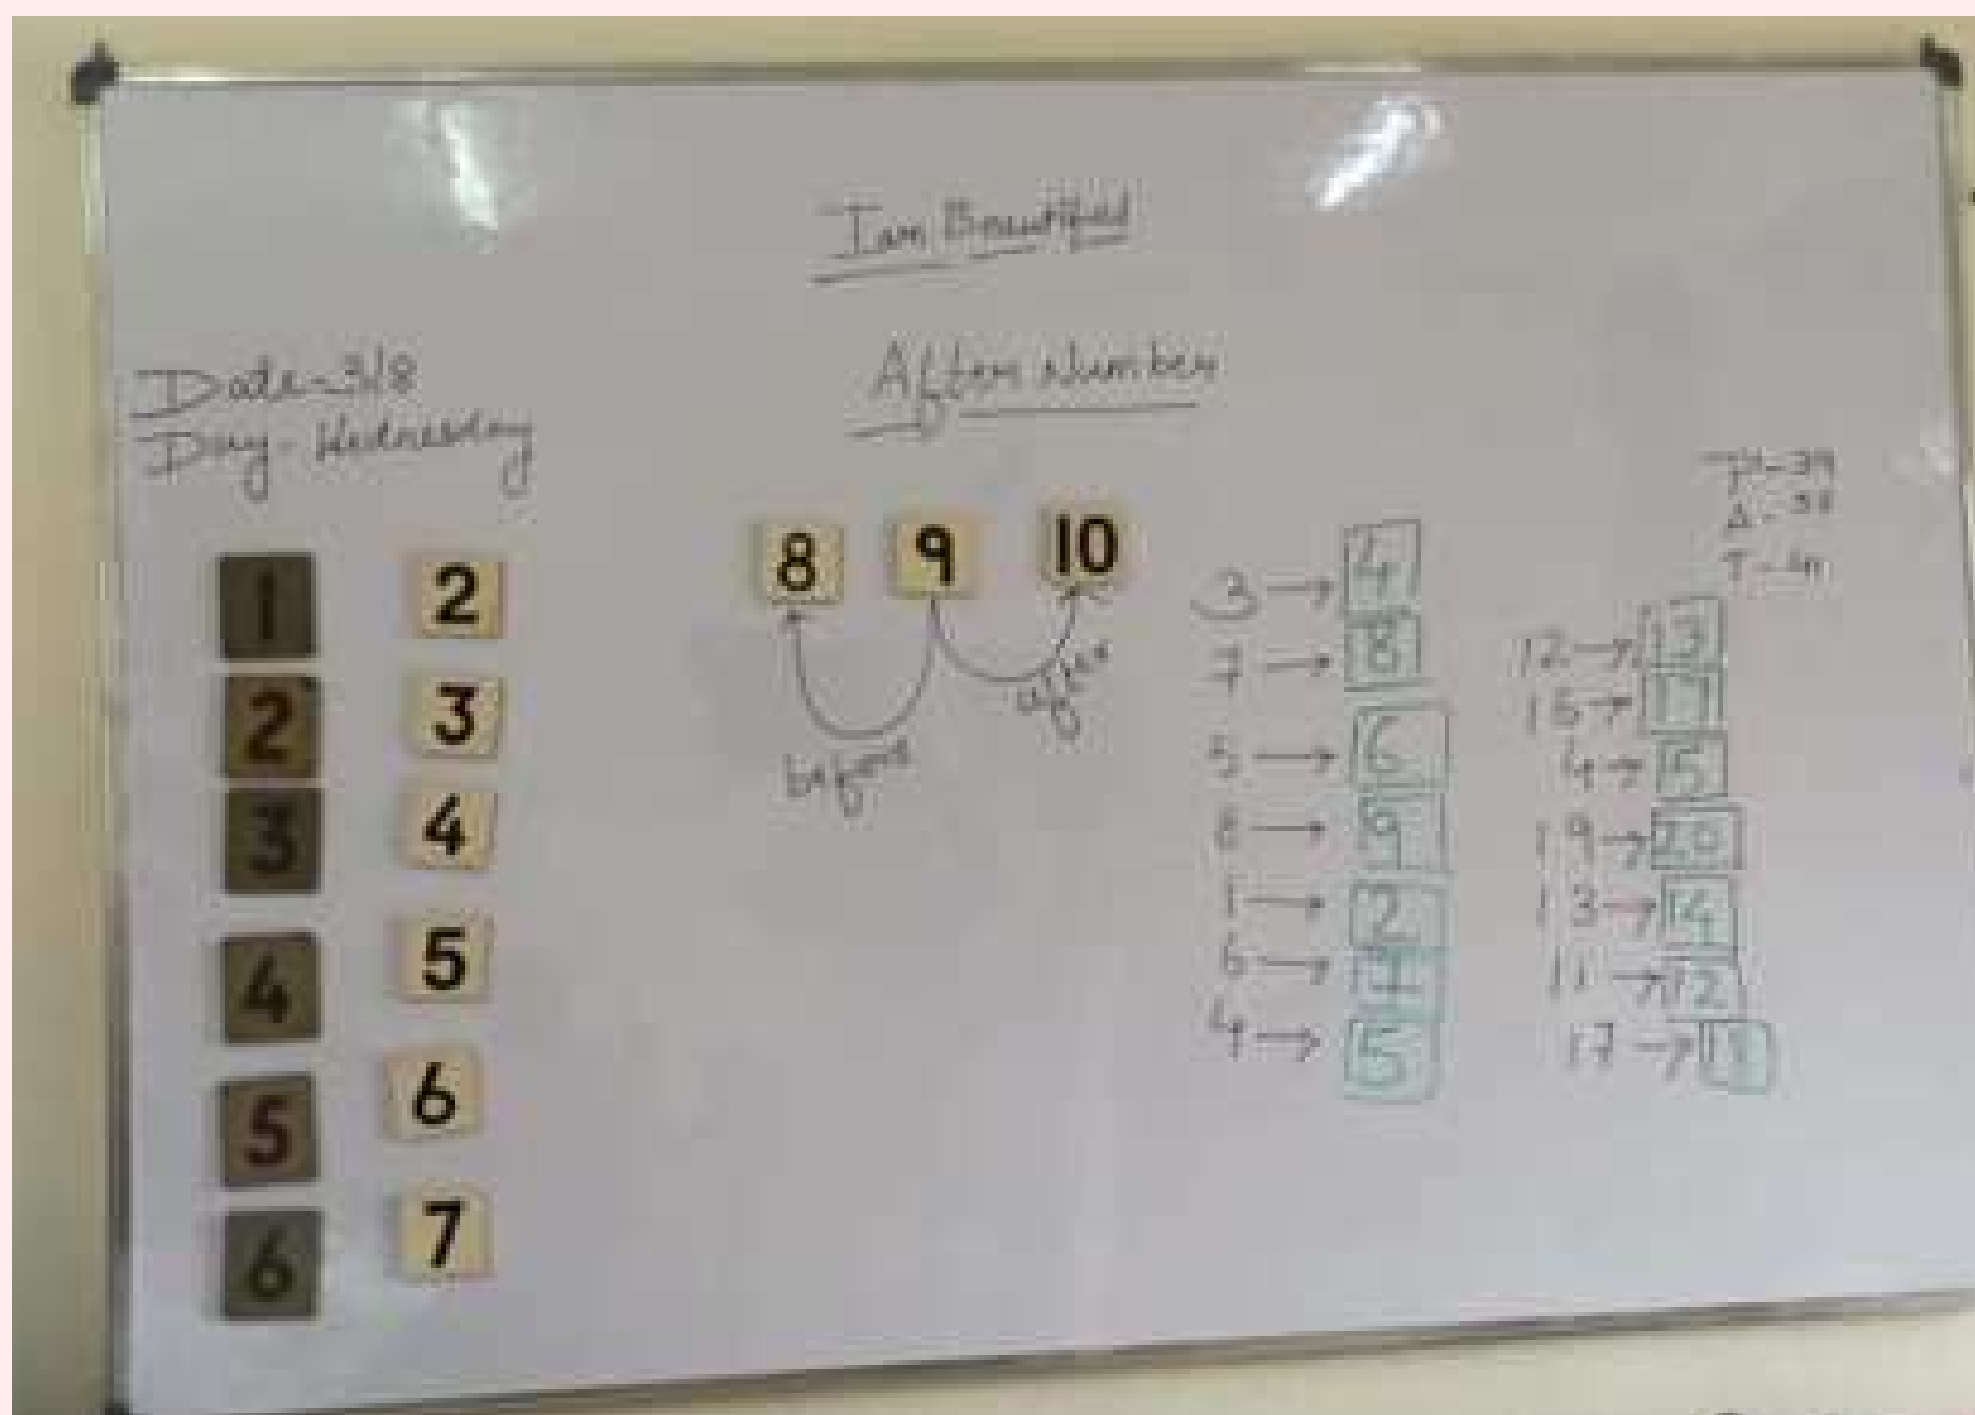 I am Beautiful
After Number
Date-3/8
Day-Wednesday
1 2
2 3
3 4
4 5
5 6
6 7
8 9 10
before after
3 → 4
7 → 8
5 → 6
8 → 9
1 → 2
6 → 7
4 → 5
12 → 13
16 → 17
4 → 5
19 → 20
13 → 14
11 → 12
17 → 18